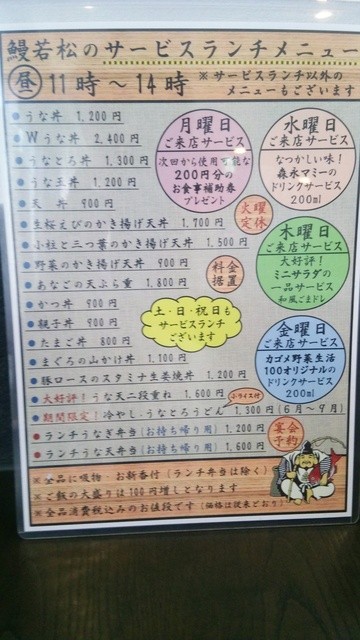 鰻若松のサービスランチメニュー
昼 11時〜14時 ※サービスランチ以外の
メニューもございます
うな丼 1,200円
Wうな丼 2,400円
うなとろ丼 1,300円
うな玉丼 1,200円
天丼 900円
生桜えびのかき揚げ天丼 1,700円
小柱と三つ葉のかき揚げ天丼 1,500円
野菜のかき揚げ天丼 900円
あなごの天ぷら重 1,800円
かつ丼 900円
親子丼 900円
たまご丼 800円
まぐろの山かけ丼 1,100円
豚ロースのスタミナ生姜焼 1,200円
大好評!うな天二段重ね 1,600円 小ライス付
期間限定!冷やし・うなとろうどん 1,300円(6月〜9月)
ランチうなぎ弁当(お持ち帰り用) 1,200円
ランチうな天弁当(お持ち帰り用) 1,600円
月曜日
ご来店サービス
次回から使用可能な
200円分の
お食事補助券
プレゼント
水曜日
ご来店サービス
なつかしい味!
森永マミーの
ドリンクサービス
200ml
火曜
定休
木曜日
ご来店サービス
大好評!
ミニサラダの
一品サービス
和風ごまドレ
料金
据置
土・日・祝日も
サービスランチ
ございます
金曜日
ご来店サービス
カゴメ野菜生活
100オリジナルの
ドリンクサービス
200ml
宴会
予約
※全品に吸物・お新香付(ランチ弁当は除く)
※ご飯の大盛りは100円増しとなります
※全品消費税込みのお値段です(価格は従来どおり)